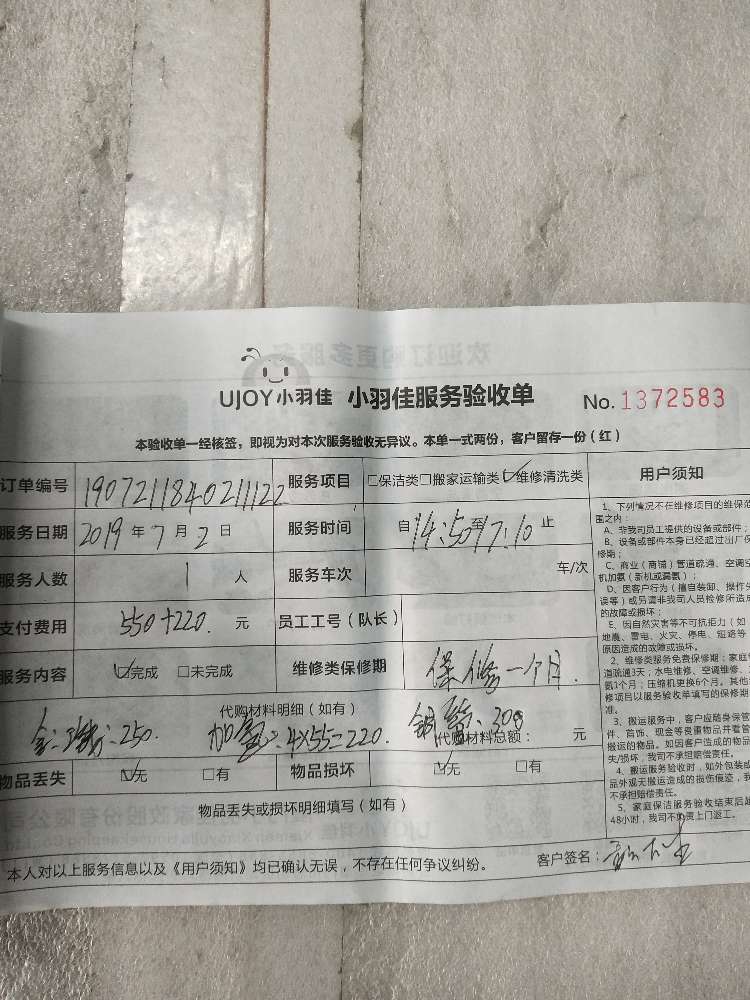 UJOY小羽佳 小羽佳服务验收单 No.1372583
本验收单一经核签，即视为对本次服务验收无异议。本单一式两份，客户留存一份（红）
订单编号 1907211840211122 服务项目 □保洁类□搬家运输类☑维修清洗类
服务日期 2019年7月2日 服务时间 自14:50至17:10止
服务人数 1人 服务车次 车/次
支付费用 550+220.元 员工工号（队长）
服务内容 ☑完成 □未完成 维修类保修期 保修一个月.
代购材料明细（如有）
250. 加氟:4X55=220. 铜管:300 代购材料总额： 元
物品丢失 ☑无 □有 物品损坏 ☑无 □有
物品丢失或损坏明细填写（如有）
本人对以上服务信息以及《用户须知》均已确认无误，不存在任何争议纠纷。 客户签名：
用户须知
1、下列情况不在维修项目的维保范
围之内：
A、非我司员工提供的设备或部件；
B、设备或部件本身已经超过出厂保
修期；
C、商业（商铺）管道疏通、空调空
机加氨（新机或漏氨）；
D、因客户行为（擅自装卸、操作失
误等）或另请非我司人员检修所造成
的故障或损坏；
E、因自然灾害等不可抗拒力（如
地震、雷电、火灾、停电、短路等
原因造成的故障或损坏。
2、维修类服务免费保修期：家庭管
道疏通3天；水电维修、空调维修、
氨1个月；压缩机更换6个月。其他
修项目以服务验收单填写的保修期
准。
3、搬运服务中，客户应随身保管
件、首饰、现金等贵重物品并看管
搬运的物品。如因客户造成的物品
失/损坏，我司不承担赔偿责任。
4、搬运服务验收时，如外包装或
品外观无搬运造成的损伤痕迹，我
不承担赔偿责任。
5、家庭保洁服务验收结束后超
48小时，我司不负责上门返工。